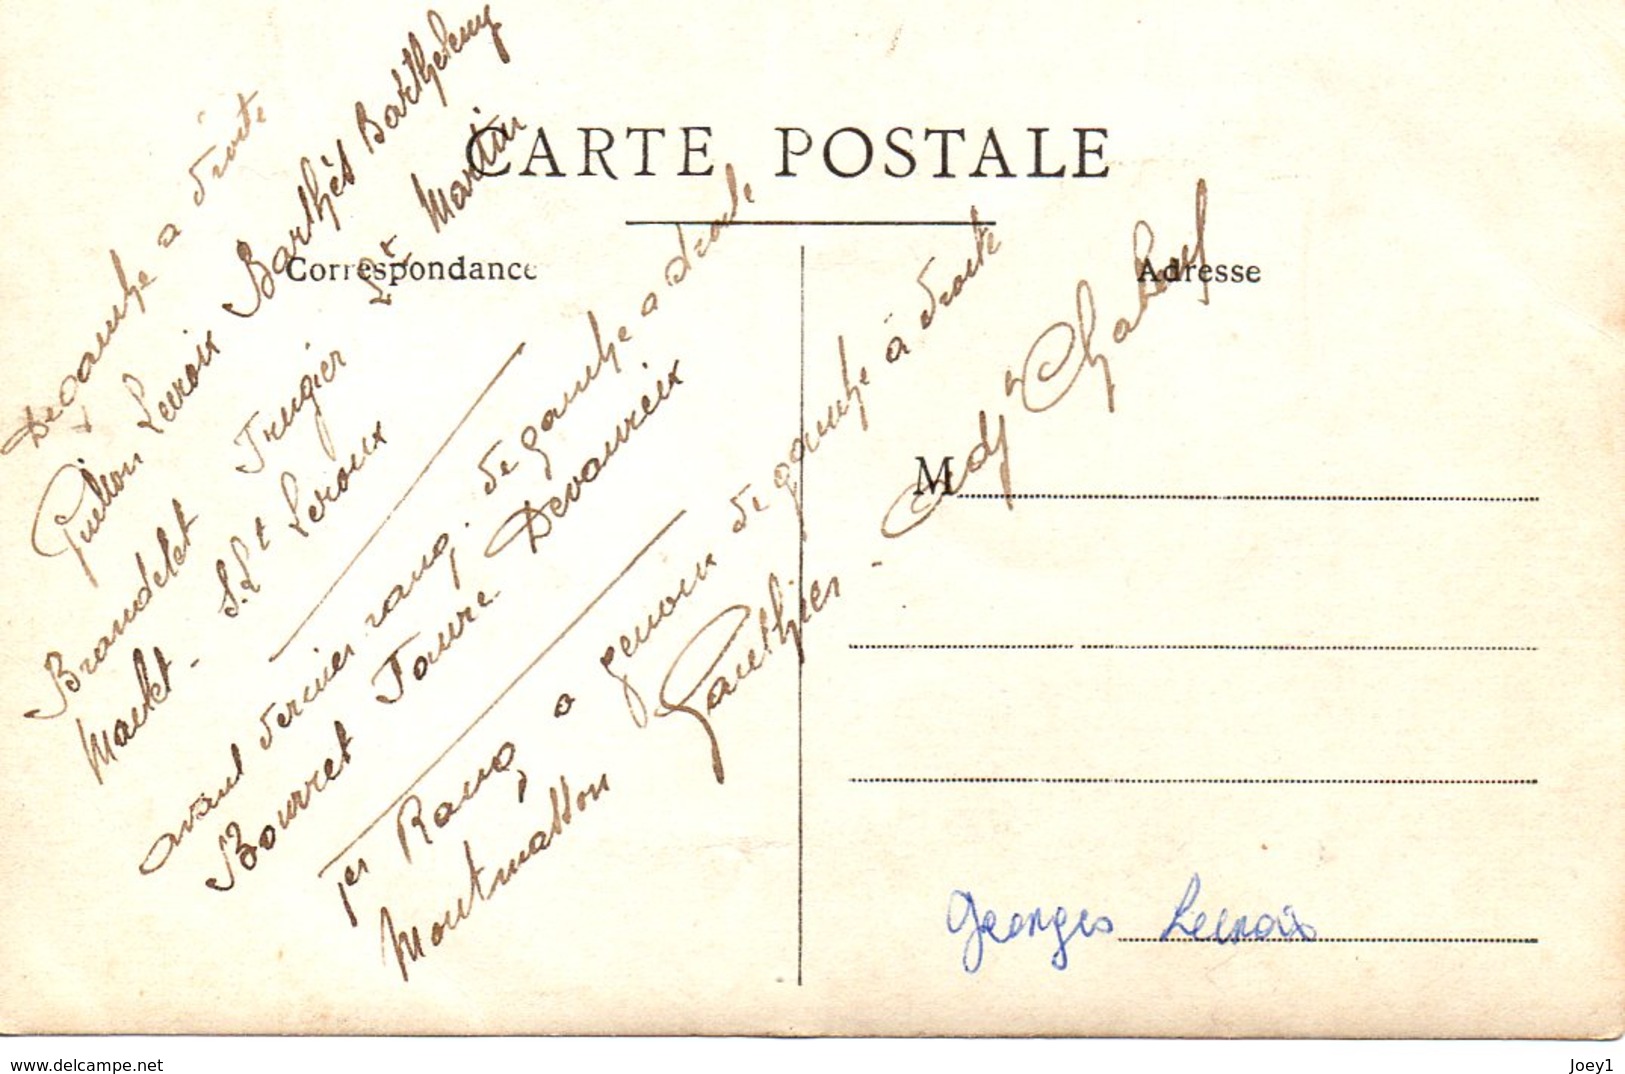 CARTE POSTALE
Correspondance
Adresse
M
De gauche a droite
Guillon Leuroix Barthès Barthelemy
Brandelet Trugier Lt Martin
Markt - S.Lt Leroux
avant dernier rang. de gauche a droite
Bourret Faure. Devaureix
1er Rang a genoux de gauche à droite
Montmasson Gauthier - Adjt Chabeuf
Georges
www.delcampe.net
Joey1